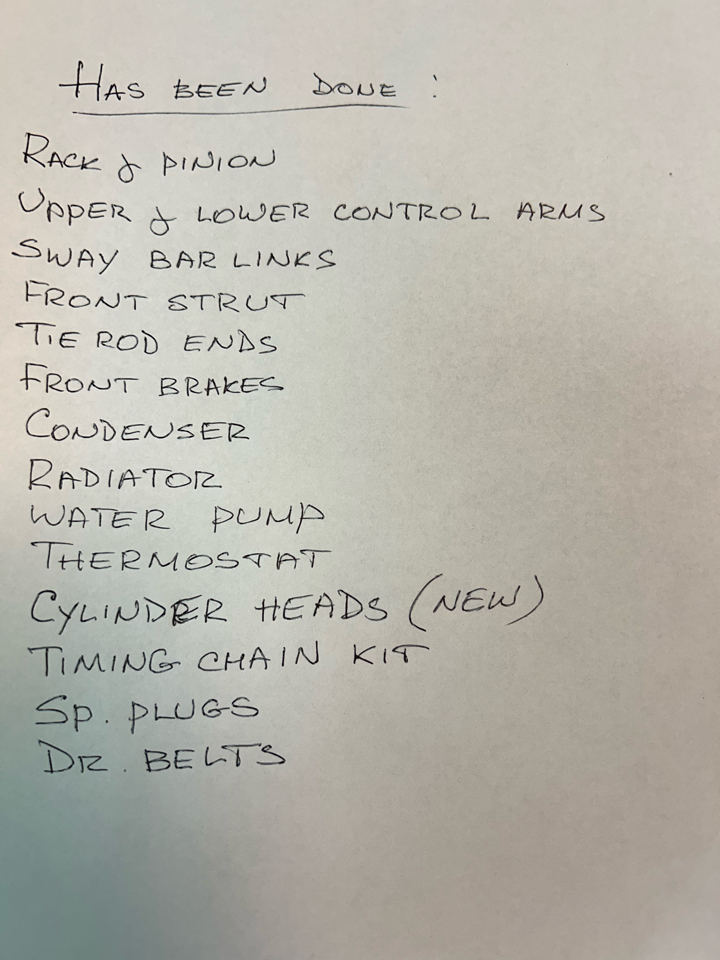 HAS BEEN DONE :
RACK & PINION
UPPER & LOWER CONTROL ARMS
SWAY BAR LINKS
FRONT STRUT
TIE ROD ENDS
FRONT BRAKES
CONDENSER
RADIATOR
WATER PUMP
THERMOSTAT
CYLINDER HEADS (NEW)
TIMING CHAIN KIT
SP. PLUGS
DR. BELTS